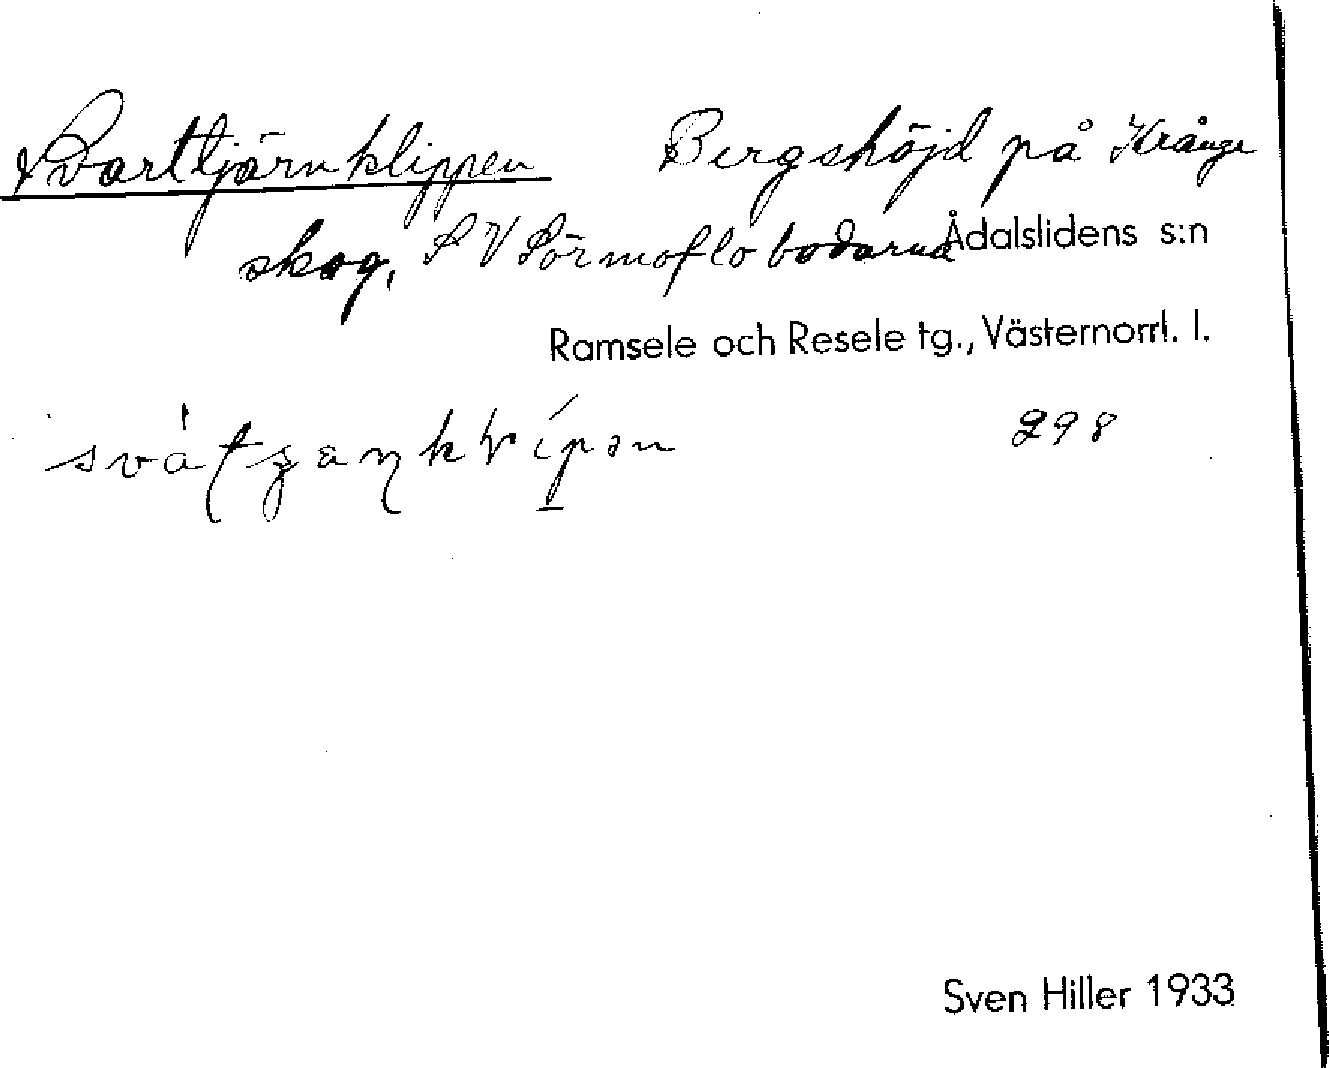 Svarttjärnklippen Bergshöjd på Krånge
skog, SV Sörmoflobodarna Ådalslidens s:n
Ramsele och Resele tg., Västernorrl. l.
298
Sven Hiller 1933